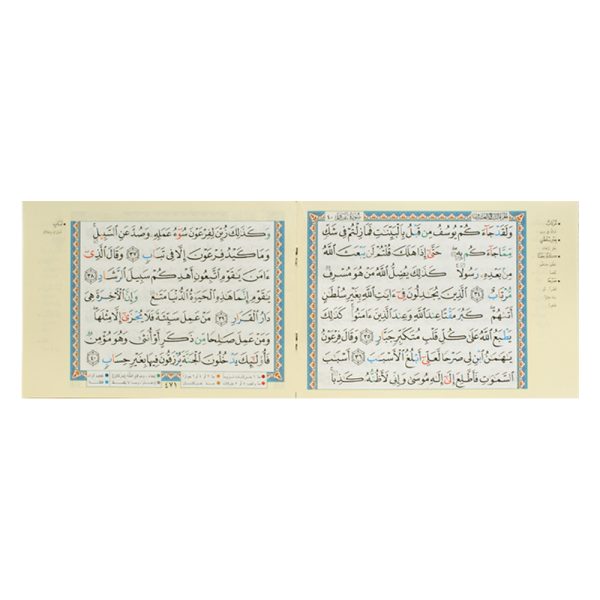 سُورَةُ غَافِرٍ ٤٠
وَلَقَدْ جَآءَكُمْ يُوسُفُ مِن قَبْلُ بِٱلْبَيِّنَٰتِ فَمَا زِلْتُمْ فِى شَكٍّ
مِّمَّا جَآءَكُم بِهِۦ حَتَّىٰٓ إِذَا هَلَكَ قُلْتُمْ لَن يَبْعَثَ ٱللَّهُ
مِنۢ بَعْدِهِۦ رَسُولًا كَذَٰلِكَ يُضِلُّ ٱللَّهُ مَنْ هُوَ مُسْرِفٌ
مُّرْتَابٌ ٣٤ ٱلَّذِينَ يُجَٰدِلُونَ فِىٓ ءَايَٰتِ ٱللَّهِ بِغَيْرِ سُلْطَٰنٍ
أَتَىٰهُمْ كَبُرَ مَقْتًا عِندَ ٱللَّهِ وَعِندَ ٱلَّذِينَ ءَامَنُوا۟ كَذَٰلِكَ
يَطْبَعُ ٱللَّهُ عَلَىٰ كُلِّ قَلْبِ مُتَكَبِّرٍ جَبَّارٍ ٣٥ وَقَالَ فِرْعَوْنُ
يَٰهَٰمَٰنُ ٱبْنِ لِى صَرْحًا لَّعَلِّىٓ أَبْلُغُ ٱلْأَسْبَٰبَ ٣٦ أَسْبَٰبَ
ٱلسَّمَٰوَٰتِ فَأَطَّلِعَ إِلَىٰٓ إِلَٰهِ مُوسَىٰ وَإِنِّى لَأَظُنُّهُۥ كَٰذِبًا
وَكَذَٰلِكَ زُيِّنَ لِفِرْعَوْنَ سُوٓءُ عَمَلِهِۦ وَصُدَّ عَنِ ٱلسَّبِيلِ
وَمَا كَيْدُ فِرْعَوْنَ إِلَّا فِى تَبَابٍ ٣٧ وَقَالَ ٱلَّذِىٓ
ءَامَنَ يَٰقَوْمِ ٱتَّبِعُونِ أَهْدِكُمْ سَبِيلَ ٱلرَّشَادِ ٣٨
يَٰقَوْمِ إِنَّمَا هَٰذِهِ ٱلْحَيَوٰةُ ٱلدُّنْيَا مَتَٰعٌ وَإِنَّ ٱلْءَاخِرَةَ هِىَ
دَارُ ٱلْقَرَارِ ٣٩ مَنْ عَمِلَ سَيِّئَةً فَلَا يُجْزَىٰٓ إِلَّا مِثْلَهَا
وَمَنْ عَمِلَ صَٰلِحًا مِّن ذَكَرٍ أَوْ أُنثَىٰ وَهُوَ مُؤْمِنٌ
فَأُو۟لَٰٓئِكَ يَدْخُلُونَ ٱلْجَنَّةَ يُرْزَقُونَ فِيهَا بِغَيْرِ حِسَابٍ ٤٠
٤٧١